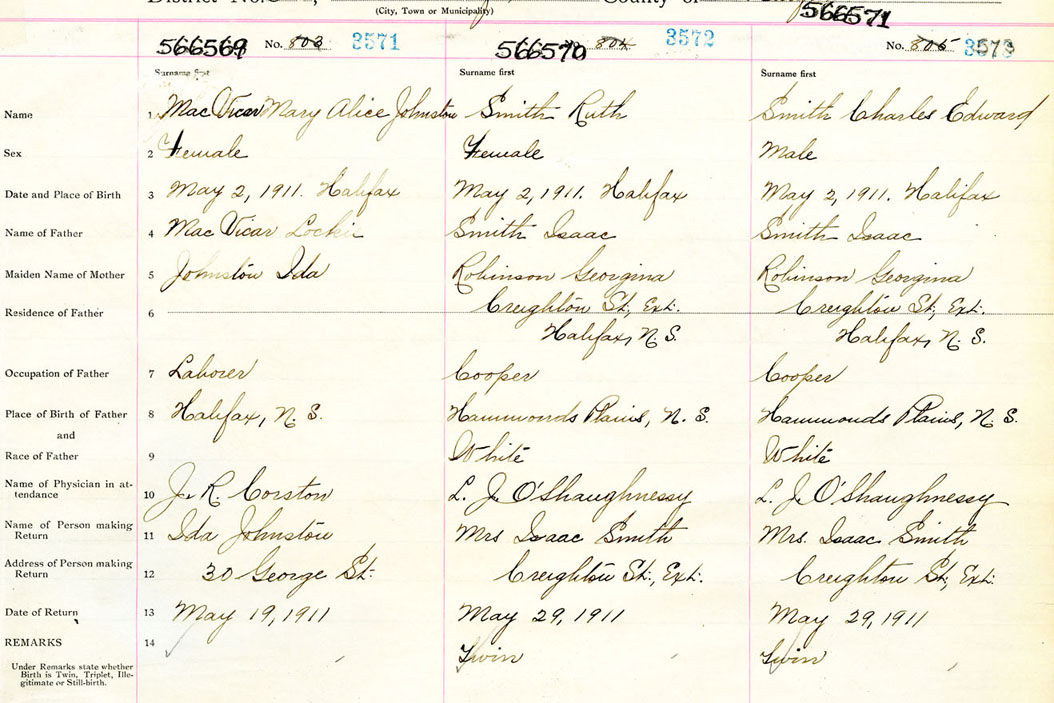 District No. County of
(City, Town or Municipality)
566569 No. 803 3571 566570 804 3572 566571 No. 805 3573
Surname first Surname first Surname first
Name 1 Mac Vicar Mary Alice Johnston Smith Ruth Smith Charles Edward
Sex 2 Female Female Male
Date and Place of Birth 3 May 2, 1911. Halifax May 2, 1911. Halifax May 2, 1911. Halifax
Name of Father 4 Mac Vicar Lockie Smith Isaac Smith Isaac
Maiden Name of Mother 5 Johnston Ida Robinson Georgina Robinson Georgina
Residence of Father 6 Creighton St., Ext. Creighton St., Ext.
Halifax, N. S. Halifax, N. S.
Occupation of Father 7 Laborer Cooper Cooper
Place of Birth of Father 8 Halifax, N. S. Hammonds Plains, N. S. Hammonds Plains, N. S.
and
Race of Father 9 White White
Name of Physician in at-
tendance 10 J. R. Corston L. J. O'Shaughnessy L. J. O'Shaughnessy
Name of Person making
Return 11 Ida Johnston Mrs Isaac Smith Mrs. Isaac Smith
Address of Person making
Return 12 30 George St. Creighton St., Ext. Creighton St., Ext.
Date of Return 13 May 19, 1911 May 29, 1911 May 29, 1911
REMARKS 14 Twin Twin
Under Remarks state whether
Birth is Twin, Triplet, Ille-
gitimate or Still-birth.